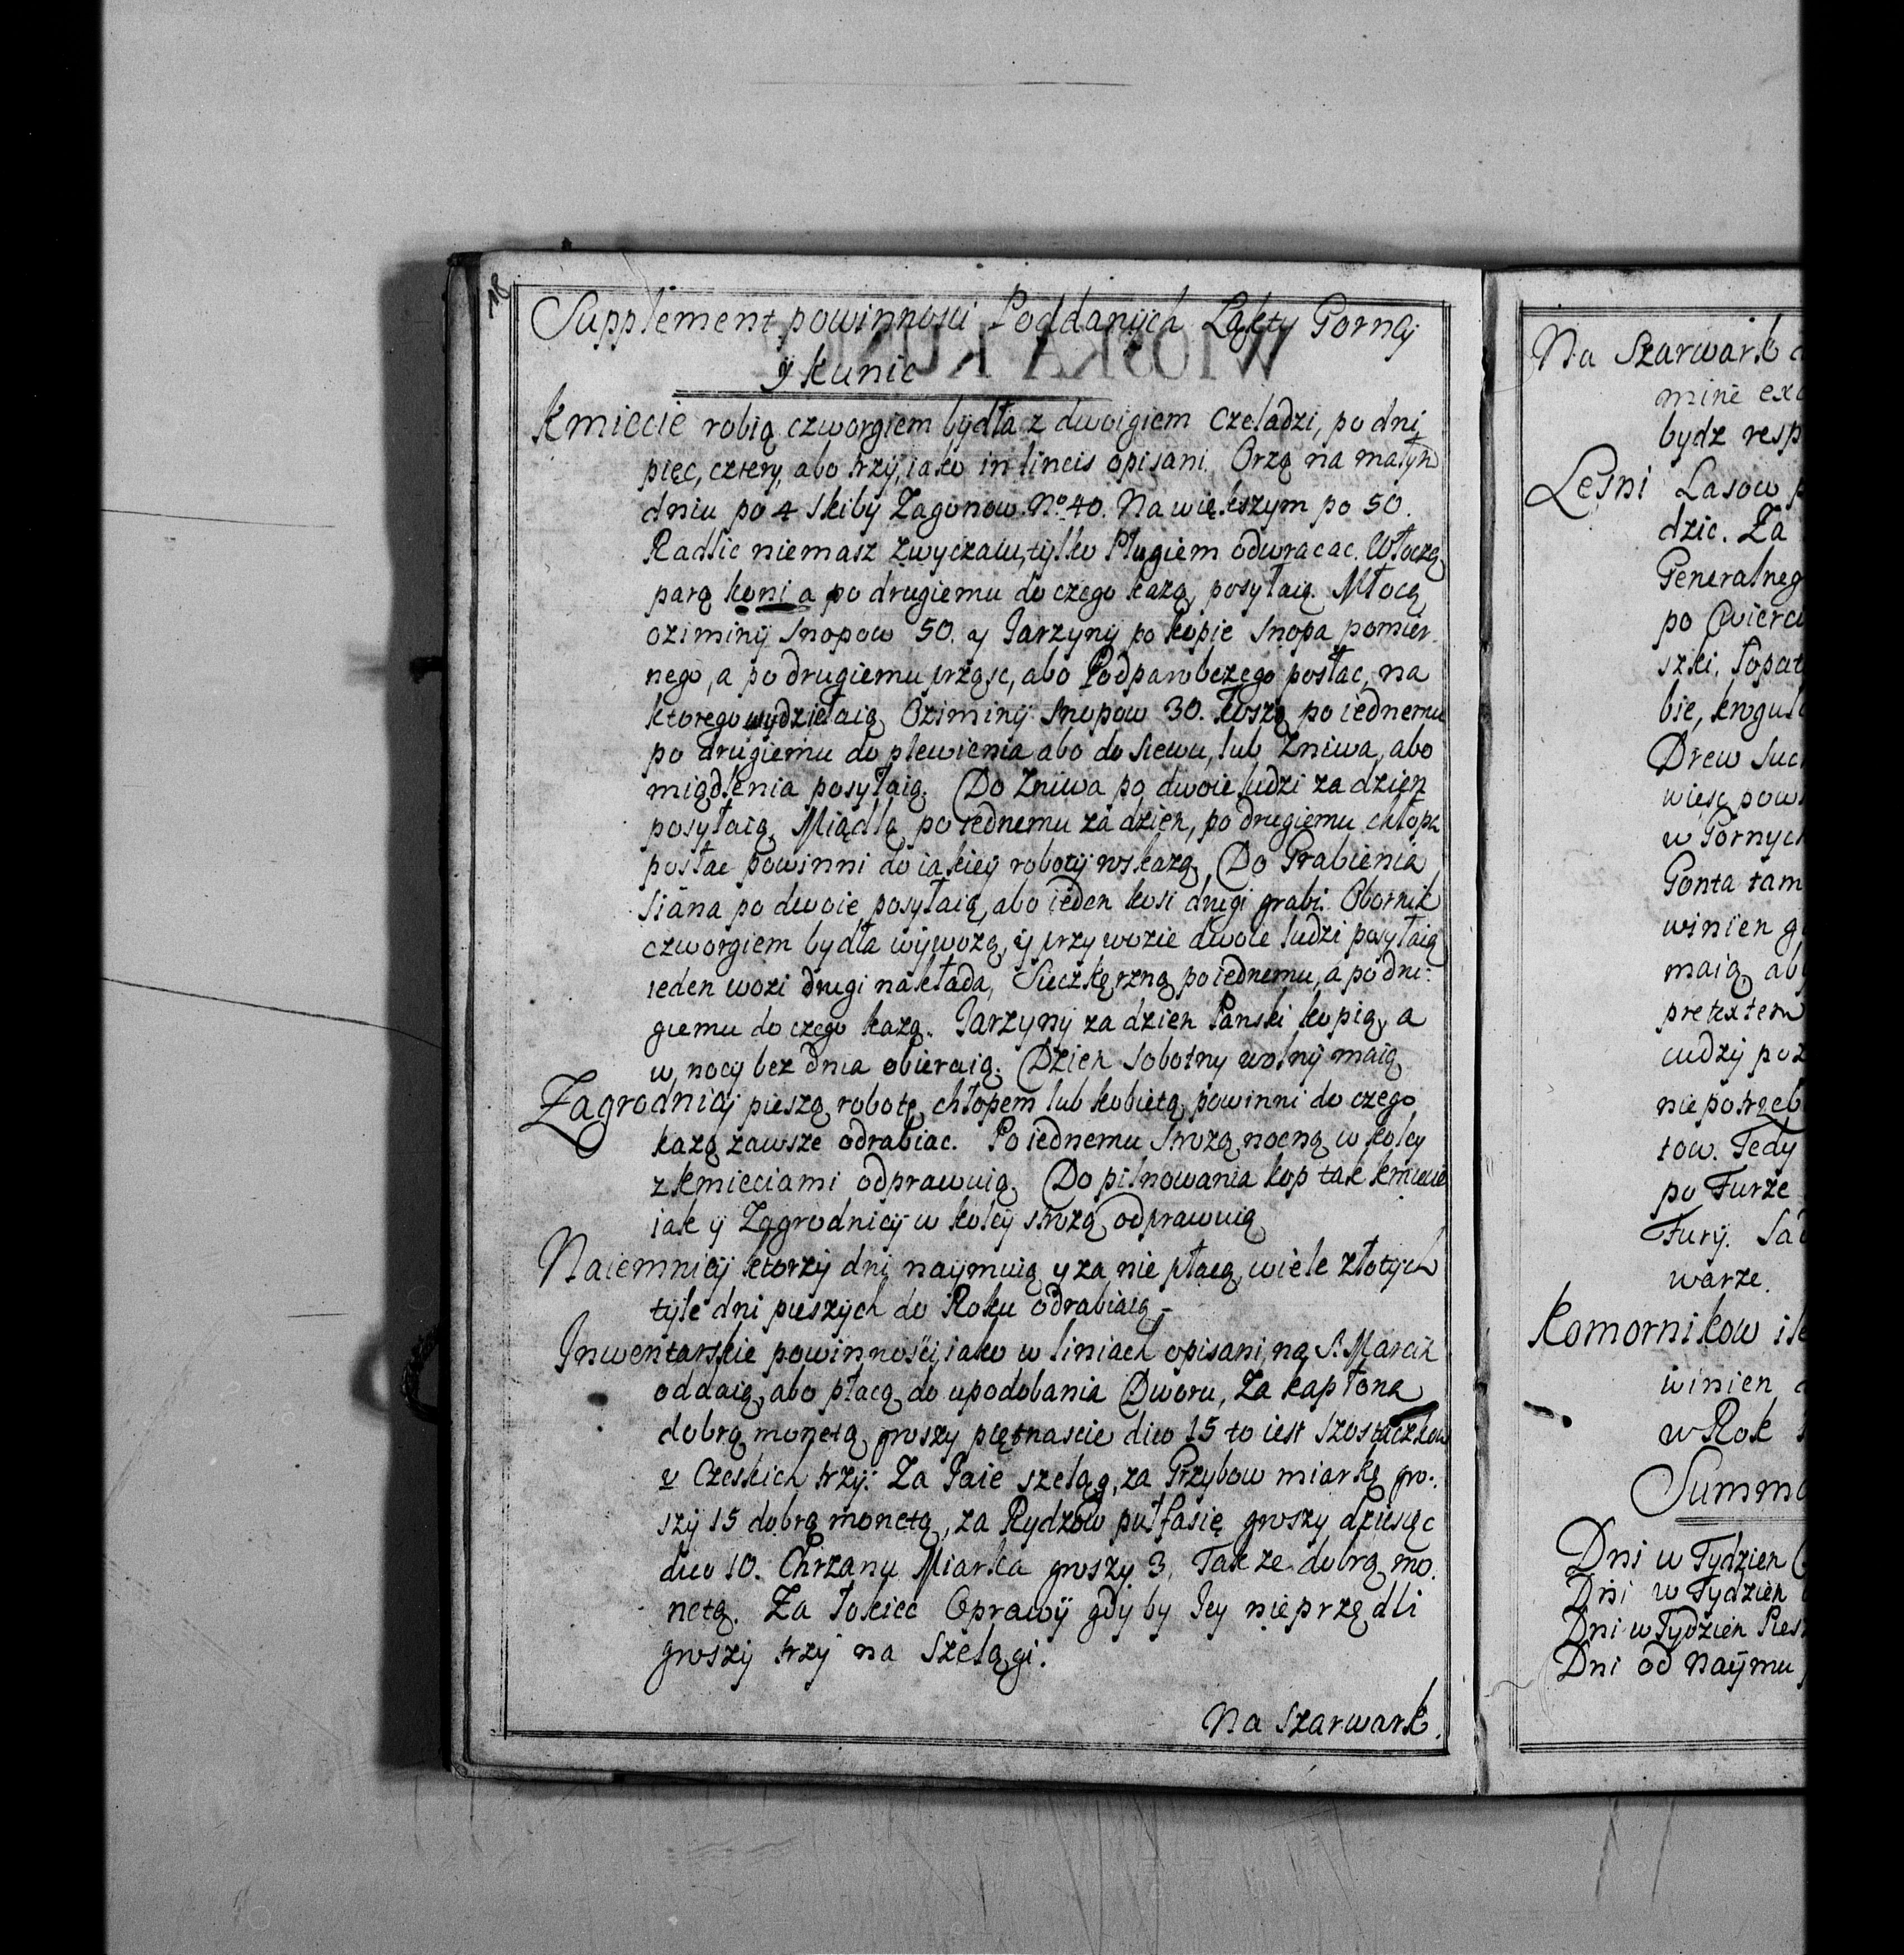 18
Supplement powinnosci Poddanych Łąkty Gorney
y Kunic
Kmiecie robią czworgiem bydła z dwoigiem Czeladzi, po dni
pięc, cztery, abo trzy, iako in lineis opisani. Orzą na małym
dniu po 4 skiby Zagonow No 40. Na większym po 50.
Radlic niemasz zwyczaiu, tylko Pługiem odwracac. Włoczą
parą koni a po drugiemu do czego każą posyłaią. Młocą
oziminy Snopow 50. y Jarzyny po kopie Snopa pomier-
nego, a po drugiemu prząsc, abo Podparobczego posłac, na
ktorego wydzielaią Oziminy Snopow 30. Koszą po iednemu
po drugiemu do plewienia abo do siewu, lub Zniwa, abo
miądlenia posyłaią. Do Zniwa po dwoie ludzi za dzien
posyłaią. Miądlą po iednemu za dzien, po drugiemu chłopa
posłac powinni do iakiey roboty wskażą. Do Grabienia
Siana po dwoie posyłaią, abo ieden kosi drugi grabi. Obornik
czworgiem bydła wywożą, y przy wozie dwoie ludzi posyłaią
ieden wozi drugi nakłada, Sieczkę rzną po iednemu, a po dru-
giemu do czego każą. Jarzyny za dzien Panski kopią, a
w nocy bez dnia obieraią. Dzien Sobotny wolny maią
Zagrodnicy pieszą robotę, chłopem lub kobietą, powinni do czego
każą zawsze odrabiac. Po iednemu Strożą nocną w koley
z Kmieciami odprawuią. Do pilnowania kop tak kmiecie
iak y Zagrodnicy w koley strożą odprawuią
Naiemnicy ktorzy dni naymuią y za nie płacą, wiele złotych
tyle dni pieszych do Roku odrabiaią -
Inwentarskie powinności, iako w liniach opisani, na S. Marcin
oddaią, abo płacą do upodobania Dworu, Za kapłona
dobrą monetą groszy piętnascie dico 15 to iest Szostaczkow
v Czeskich trzy: Za Jaie szeląg, za Grzybow miarkę gro-
szy 15 dobrą monetą, za Rydzow puł fasię groszy dziesięc
dico 10. Chrzanu Miarka groszy 3. Takze dobrą mo-
netą. Za łokiec Oprawy gdyby Jey nieprzędli
groszy trzy na Szelągi.
Na szarwark.
Na Szarwark
mine
bydz resp
Lesni Lasow
dzic. Za
Generalneg
po
szki, łopat
bie,
Drew Such
wiesc pow
w Gornych
Gonta tam
winien
maią, aby
pretextem
cudzy
niepotrzeb
tow. Tedy
po Furze
Fury.
warze.
Komornikow
winien
w Rok
Summa
Dni w Tydzien
Dni w Tydzien
Dni w Tydzien Piesz
Dni od naymu